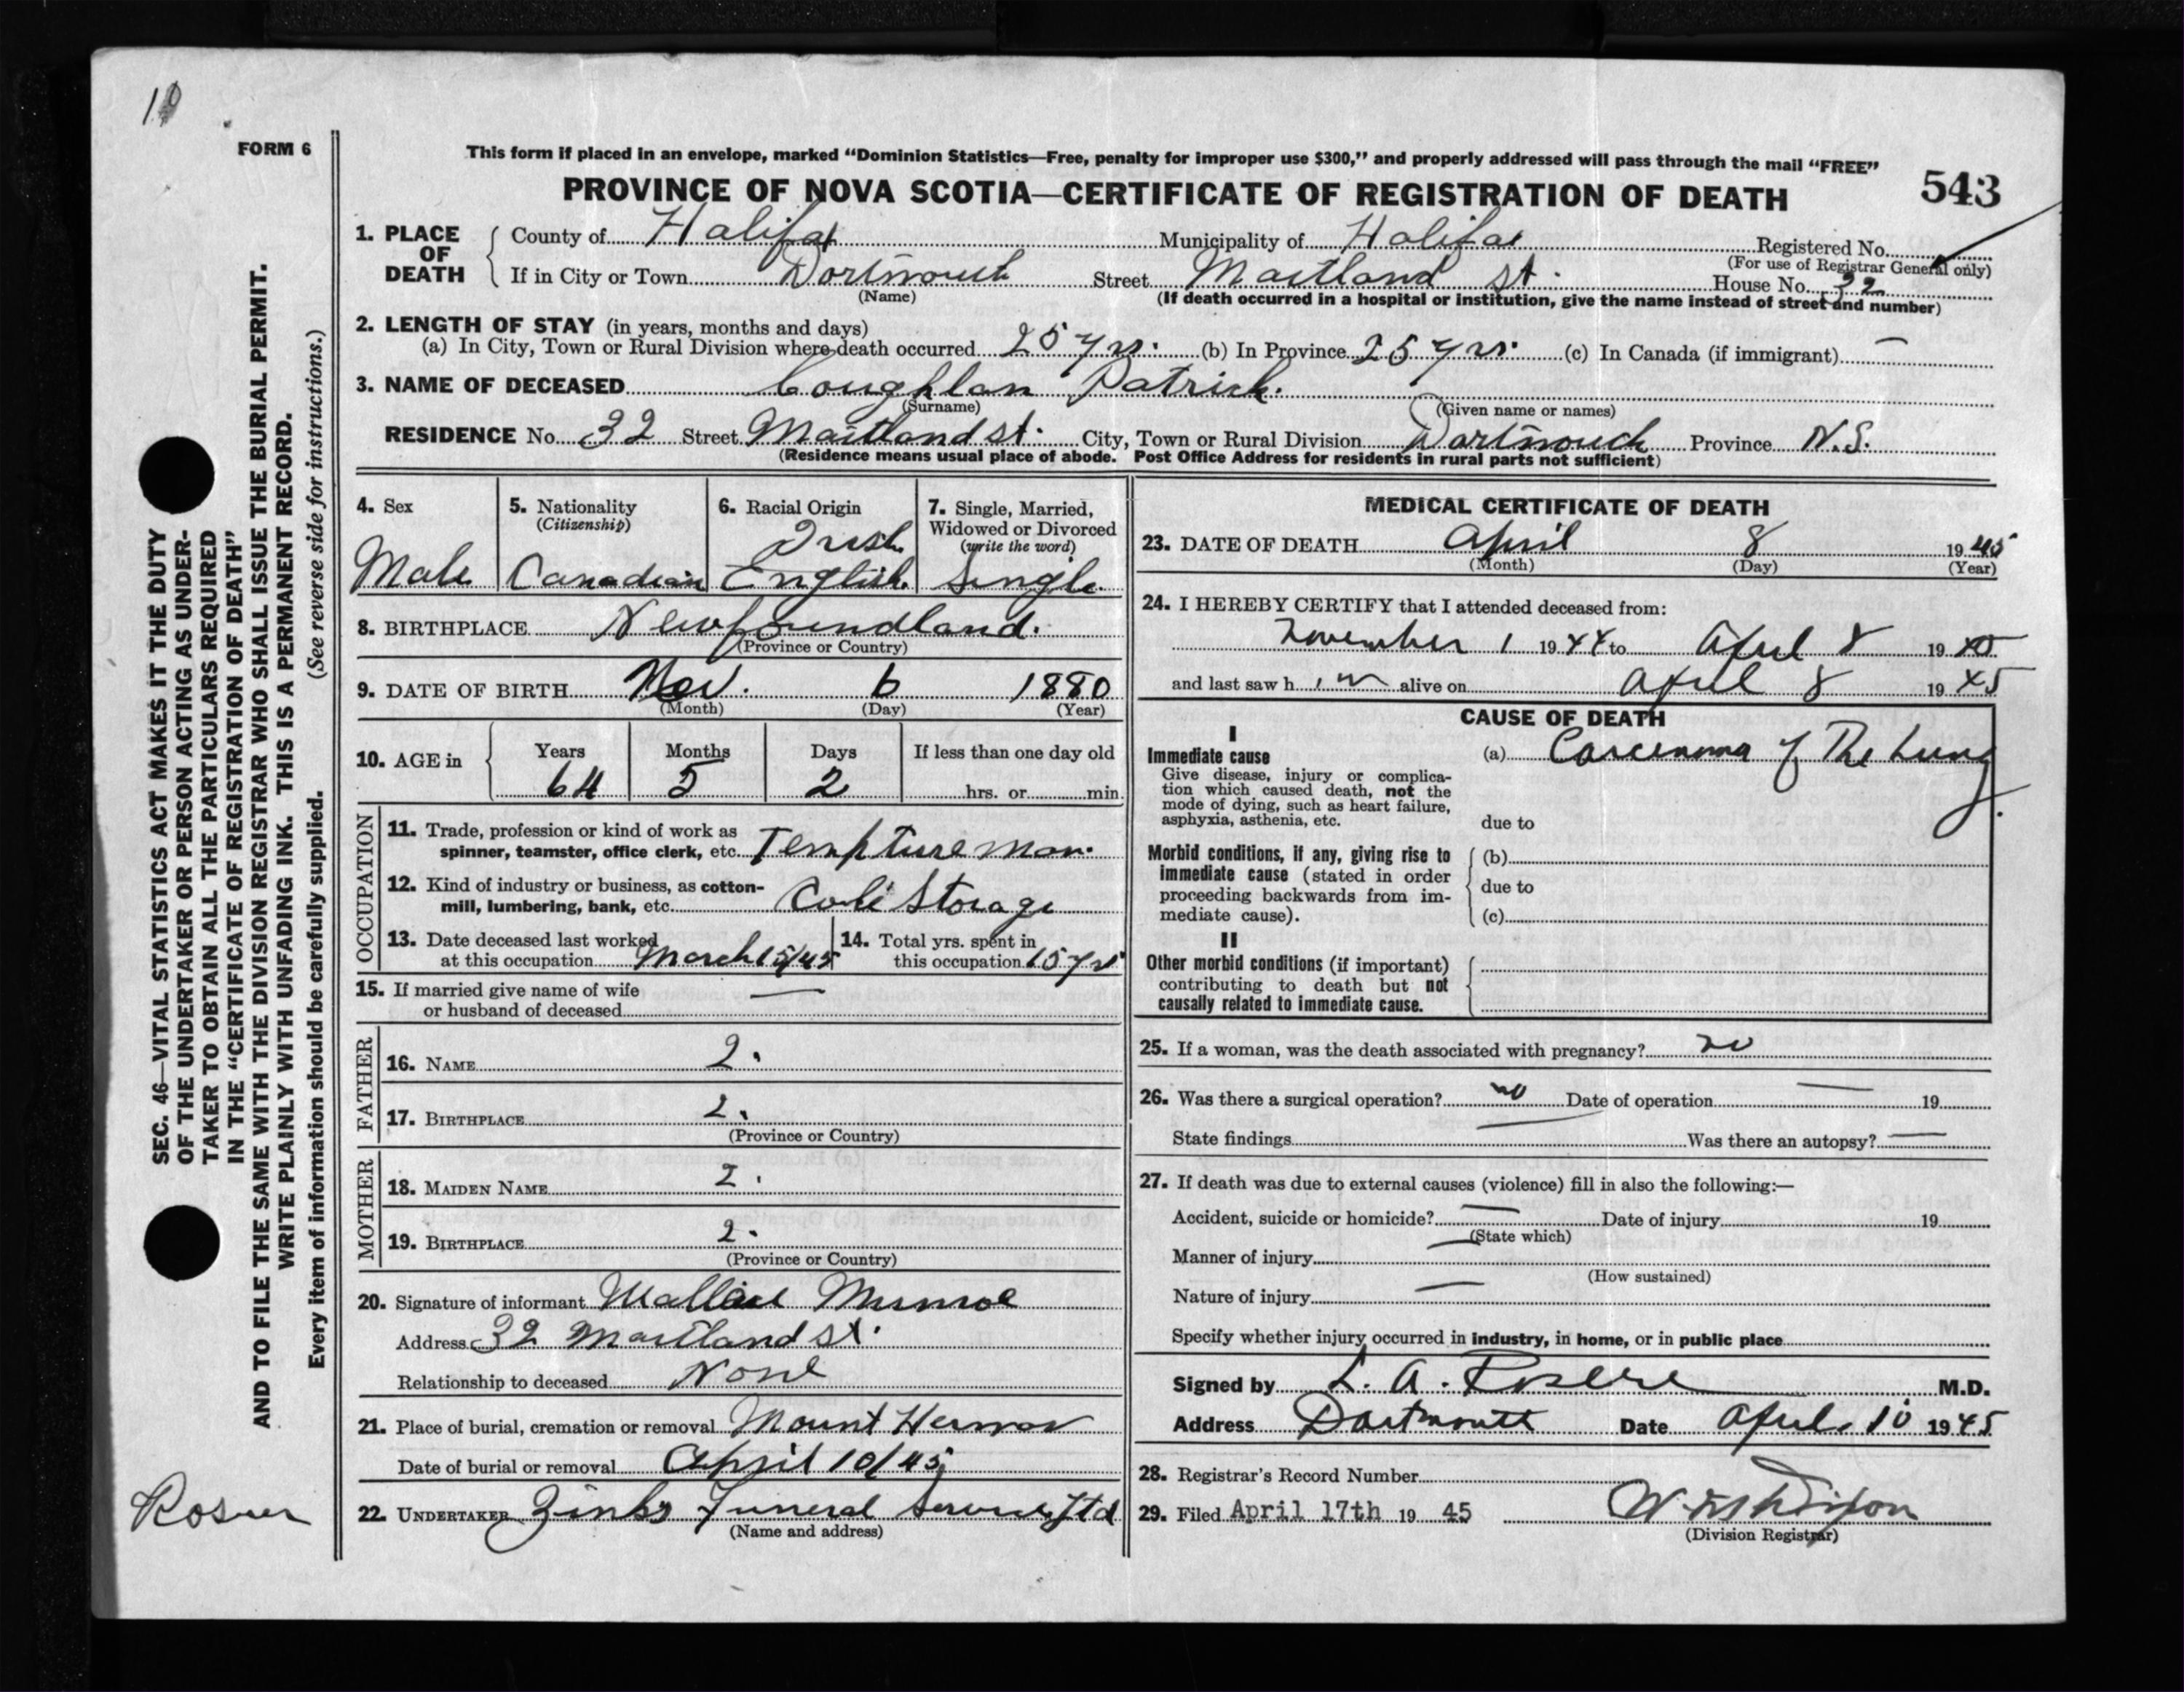 FORM 6
This form if placed in an envelope, marked “Dominion Statistics—Free, penalty for improper use $300,” and properly addressed will pass through the mail “FREE”
PROVINCE OF NOVA SCOTIA—CERTIFICATE OF REGISTRATION OF DEATH 543
1. PLACE OF DEATH
County of Halifax Municipality of Halifax Registered No.
(For use of Registrar General only)
If in City or Town Dartmouth Street Maitland St. House No. 32
(Name) (If death occurred in a hospital or institution, give the name instead of street and number)
2. LENGTH OF STAY (in years, months and days)
(a) In City, Town or Rural Division where death occurred 25 yrs. (b) In Province 25 yrs. (c) In Canada (if immigrant) —
3. NAME OF DECEASED Coughlan Patrick.
(Surname) (Given name or names)
RESIDENCE No. 32 Street Maitland St. City, Town or Rural Division Dartmouth Province N.S.
(Residence means usual place of abode. Post Office Address for residents in rural parts not sufficient)
4. Sex
Male
5. Nationality
(Citizenship)
Canadian
6. Racial Origin
Irish
English.
7. Single, Married,
Widowed or Divorced
(write the word)
Single.
8. BIRTHPLACE Newfoundland.
(Province or Country)
9. DATE OF BIRTH Nov. 6 1880
(Month) (Day) (Year)
10. AGE in
Years Months Days If less than one day old
64 5 2 hrs. or min.
OCCUPATION
11. Trade, profession or kind of work as
spinner, teamster, office clerk, etc. Tempture man.
12. Kind of industry or business, as cotton-
mill, lumbering, bank, etc. Storage
13. Date deceased last worked
at this occupation March 15/45
14. Total yrs. spent in
this occupation 15 yrs
15. If married give name of wife —
or husband of deceased
FATHER
16. NAME ?.
17. BIRTHPLACE ?.
(Province or Country)
MOTHER
18. MAIDEN NAME ?.
19. BIRTHPLACE ?.
(Province or Country)
20. Signature of informant Wallace Munroe
Address 32 Maitland St.
Relationship to deceased None
21. Place of burial, cremation or removal Mount Hermon
Date of burial or removal April 10/45
22. UNDERTAKER Zinks Funeral Service Ltd
(Name and address)
MEDICAL CERTIFICATE OF DEATH
23. DATE OF DEATH April 8 1945
(Month) (Day) (Year)
24. I HEREBY CERTIFY that I attended deceased from:
November 1 1944 to April 8 1945
and last saw him alive on April 8 1945
CAUSE OF DEATH
I
Immediate cause
Give disease, injury or complica-
tion which caused death, not the
mode of dying, such as heart failure,
asphyxia, asthenia, etc.
(a) Carcinoma of The Lung.
due to
Morbid conditions, if any, giving rise to
immediate cause (stated in order
proceeding backwards from im-
mediate cause).
(b)
due to
(c)
II
Other morbid conditions (if important)
contributing to death but not
causally related to immediate cause.
25. If a woman, was the death associated with pregnancy? no
26. Was there a surgical operation? no Date of operation — 19
State findings — Was there an autopsy? —
27. If death was due to external causes (violence) fill in also the following:—
Accident, suicide or homicide? — Date of injury 19
(State which)
Manner of injury —
(How sustained)
Nature of injury —
Specify whether injury occurred in industry, in home, or in public place
Signed by L. A. Rosere M.D.
Address Dartmouth Date April 10 1945
28. Registrar's Record Number
29. Filed April 17th 19 45
(Division Registrar)
SEC. 46—VITAL STATISTICS ACT MAKES IT THE DUTY
OF THE UNDERTAKER OR PERSON ACTING AS UNDER-
TAKER TO OBTAIN ALL THE PARTICULARS REQUIRED
IN THE “CERTIFICATE OF REGISTRATION OF DEATH”
AND TO FILE THE SAME WITH THE DIVISION REGISTRAR WHO SHALL ISSUE THE BURIAL PERMIT.
WRITE PLAINLY WITH UNFADING INK. THIS IS A PERMANENT RECORD.
Every item of information should be carefully supplied. (See reverse side for instructions.)